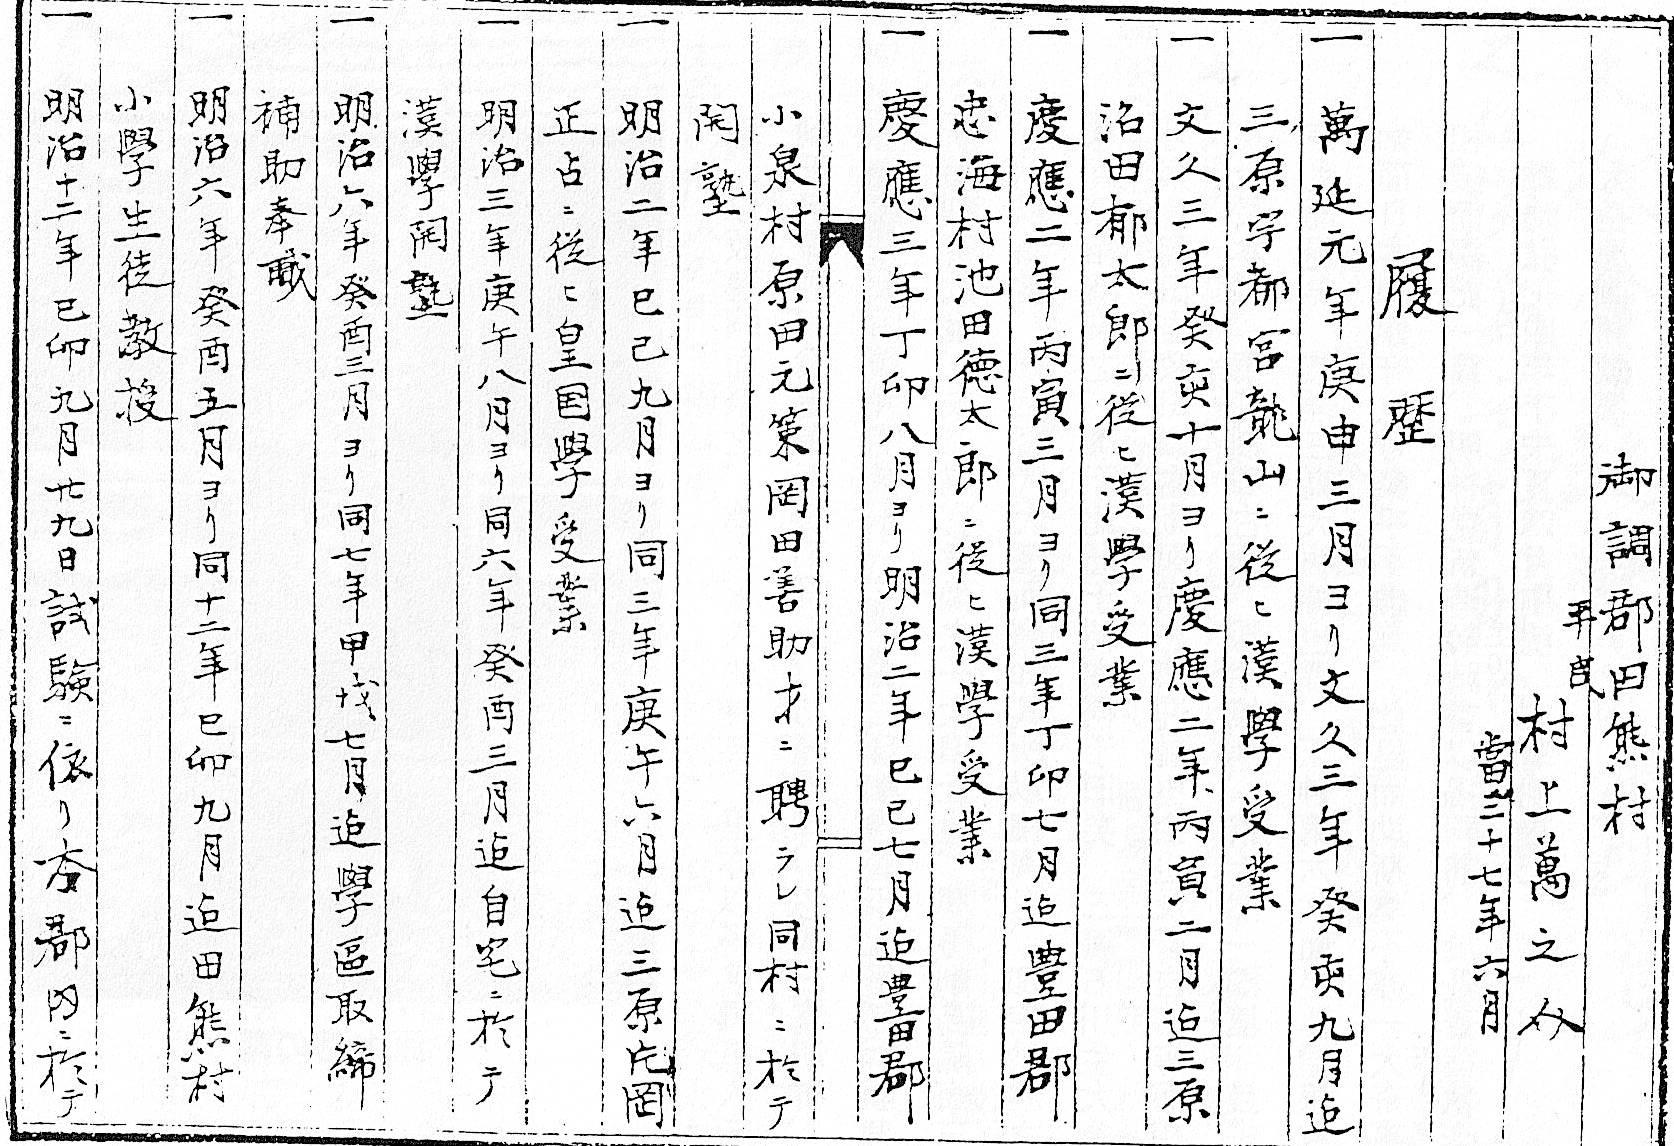 御調郡田熊村
平民
村上萬之介
當二十七年六月
履歴
一 萬延元年庚申三月ヨリ文久三年癸亥九月迠
三原宇都宮龍山ニ従ヒ漢學受業
一 文久三年癸亥十月ヨリ慶應二年丙寅二月迠三原
沼田郁太郎ニ従ヒ漢學受業
一 慶應二年丙寅三月ヨリ同三年丁卯七月迠豊田郡
忠海村池田徳太郎ニ従ヒ漢學受業
一 慶應三年丁卯八月ヨリ明治二年巳己七月迠豊田郡
小泉村原田元策岡田善助才ニ聘ラレ同村ニ於テ
開塾
一 明治二年巳己九月ヨリ同三年庚午六月迠三原片岡
正占ニ従ヒ皇国學受業
一 明治三年庚午八月ヨリ同六年癸酉三月迠自宅ニ於テ
漢學開塾
一 明治六年癸酉三月ヨリ同七年甲戌七月迠學區取締
補助奉職
一 明治六年癸酉五月ヨリ同十二年巳卯九月迠田熊村
小學生徒教授
一 明治十二年巳卯九月廿九日試験ニ依リ本郡内ニ於テ